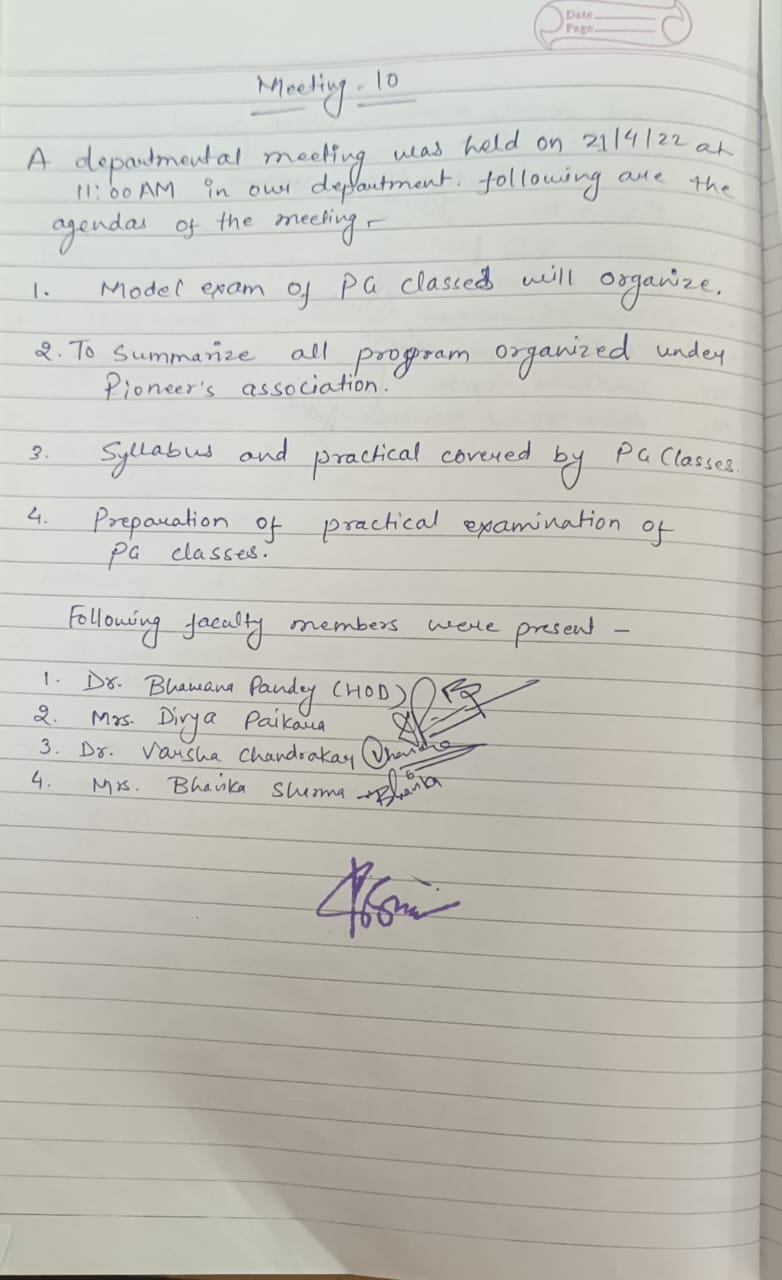 Date
Page
Meeting - 10
A departmental meeting was held on 21/4/22 at
11:00 AM in our department. following are the
agendas of the meeting -
1. Model exam of PG classes will organize.
2. To Summarize all program organized under
Pioneer's association.
3. Syllabus and practical covered by PG Classes.
4. Preparation of practical examination of
PG classes.
Following faculty members were present -
1. Dr. Bhawana Pandey (HOD)
2. Mrs. Divya Paikara
3. Dr. Varsha Chandrakar
4. Mrs. Bhavika Sharma